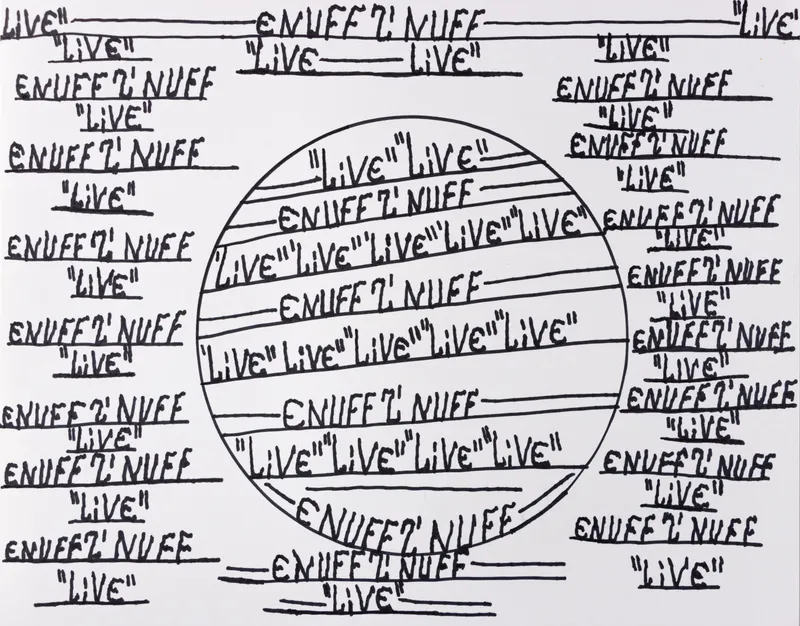 LiVE" ENUFF Z' NUFF "LiVE'
"LiVE"
ENUFF Z' NUFF
"LiVE"
ENUFF Z' NUFF
"LiVE"
ENUFF Z' NUFF
"LiVE"
ENUFF Z' NUFF
"LiVE"
ENUFF Z' NUFF
"LiVE"
ENUFF Z' NUFF
"LiVE"
ENUFF Z' NUFF
"LiVE"
"LiVE LiVE"
"LiVE" "LiVE"
ENUFF Z' NUFF
'LiVE" 'LiVE" 'LiVE" 'LiVE" "LiVE"
ENUFF Z' NUFF
'LiVE" LiVE" "LiVE" "LiVE" "LiVE"
ENUFF Z' NUFF
"LiVE" "LiVE" "LiVE" "LiVE"
ENUFF Z' NUFF
ENUFF Z' NUFF
"LiVE"
"LiVE"
ENUFF Z' NUFF
"LiVE"
ENUFF Z' NUFF
"LiVE"
ENUFF Z' NUFF
"LiVE"
ENUFF Z' NUFF
"LiVE"
ENUFF Z' NUFF
"LiVE"
ENUFF Z' NUFF
"LiVE"
ENUFF Z' NUFF
"LiVE"
ENUFF Z' NUFF
"LiVE"